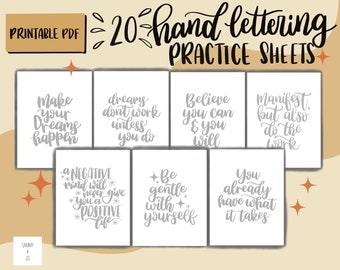 PRINTABLE PDF
20 hand lettering
PRACTICE SHEETS
Make
your
Dreams
happen
dreams
dont work
unless
you do
Believe
you can
& you
will
Manifest
but also
do the
work
a NEGATIVE
mind will
never give
you a
POSITIVE
life
Be
gentle
with
yourself
You
already
have what
it takes